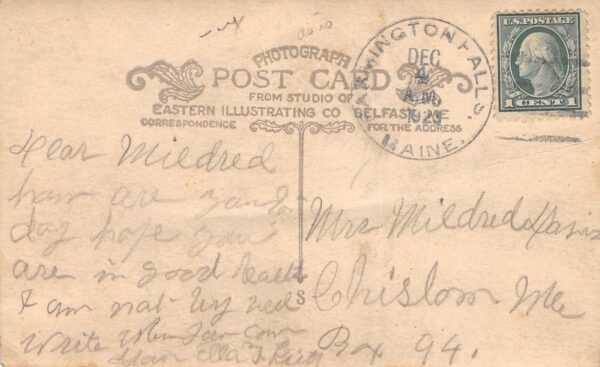 as is
PHOTOGRAPH
POST CARD
FROM STUDIO OF
EASTERN ILLUSTRATING CO BELFAST, ME
CORRESPONDENCE
FOR THE ADDRESS
FARMINGTON FALLS.
DEC
4
A.M.
1923
MAINE.
U.S. POSTAGE
1 CENT 1
Dear Mildred
how are you to
day hope you
are in good health
I am not
Write when you
Ella
Mrs Mildred
Chislom Me
Box 94.